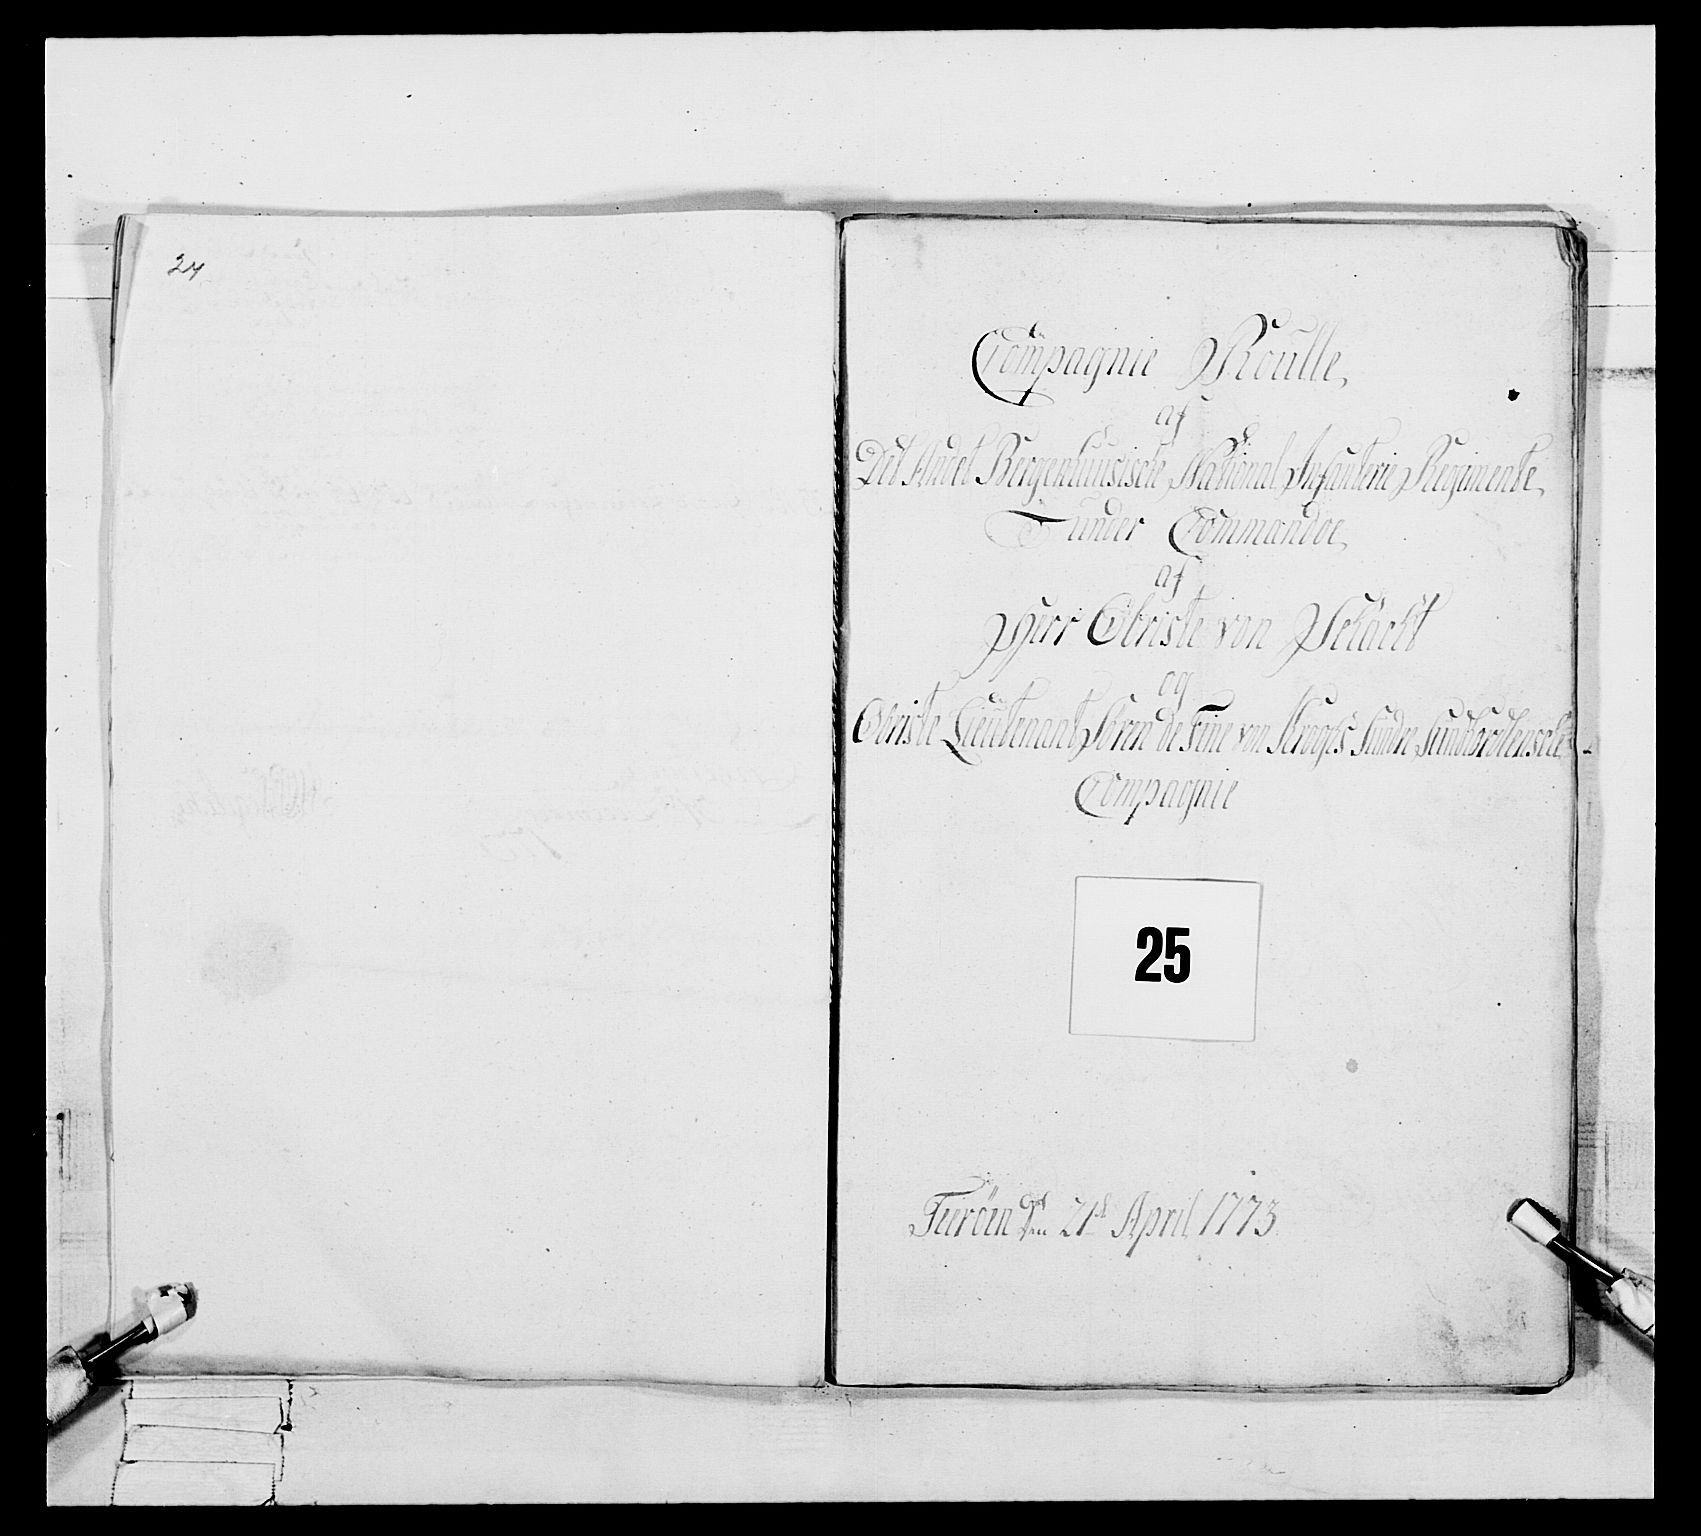 24
Compagnie Roulle,
af
Det Andet Bergenhuusiske National Infanterie Regimente,
under Commandoe,
af
Herr Obriste von
og
Obriste Lieutenant Sören de Fine von Krogh's Söndre Sundhordlenske
Compagnie
25
Turöen den 21de April 1773